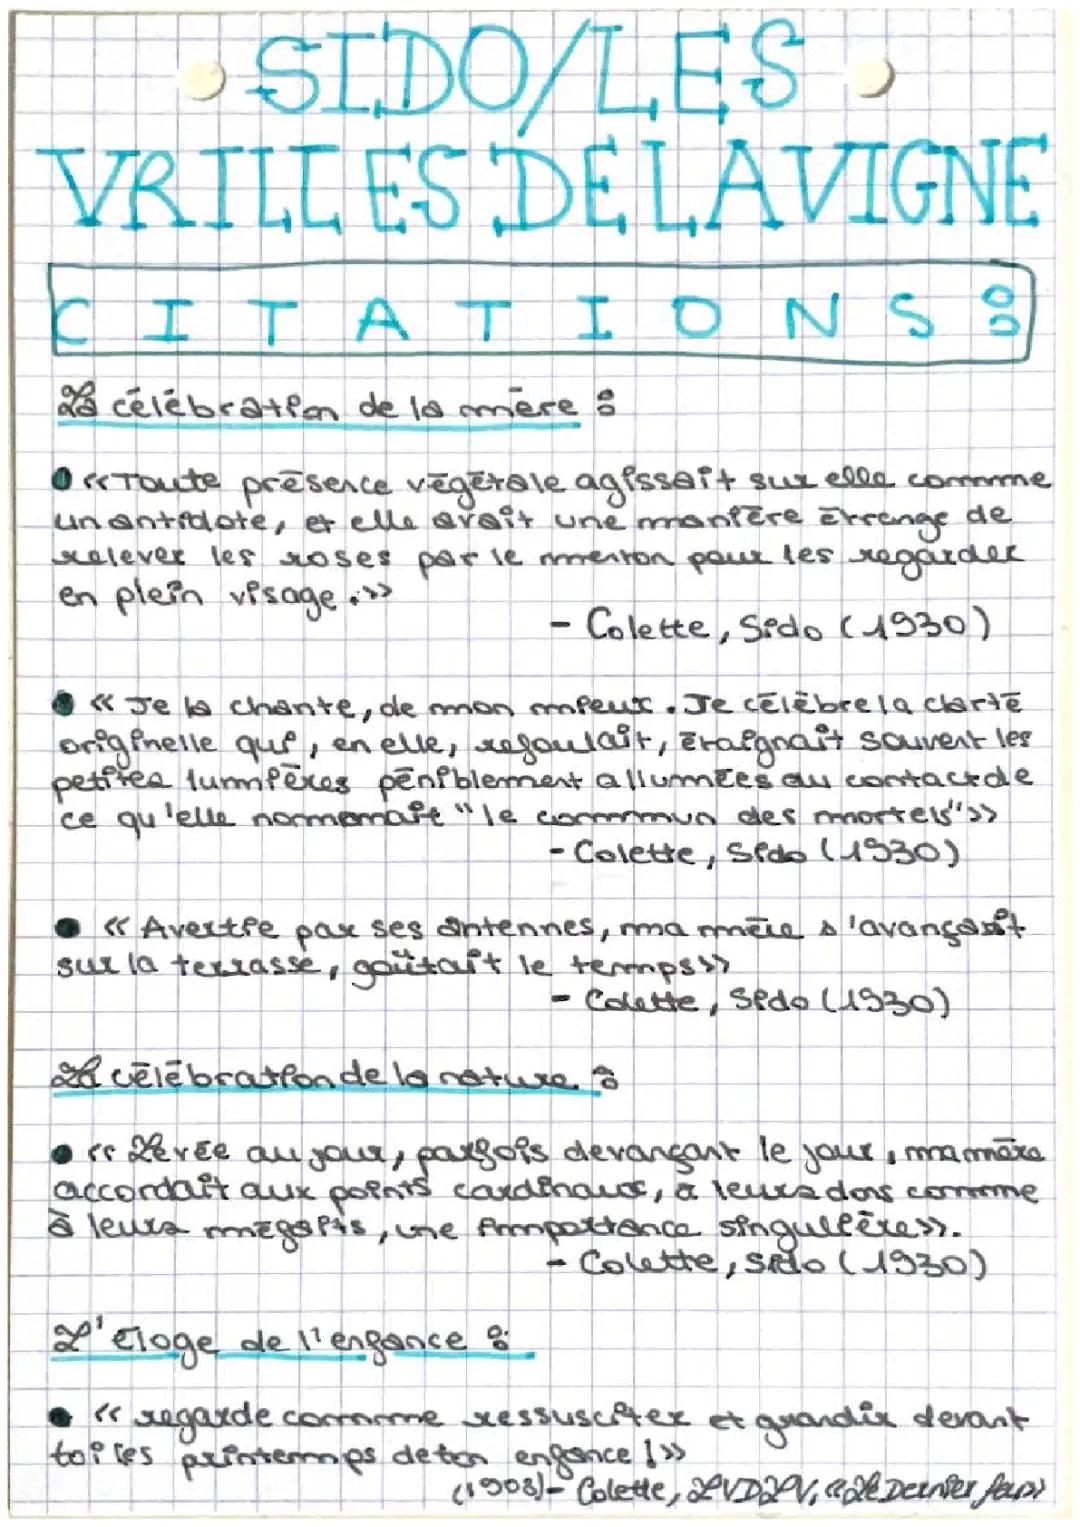 SIDO/LES
VRILLES DE LA VIGNE
CITATIONS :
La célébration de la mère :
• «Toute présence végétale agissait sur elle comme
un antidote, et elle avait une manière étrange de
relever les roses par le menton pour les regarder
en plein visage.»
- Colette, Sido (1930)
• « Je la chante, de mon mieux. Je célèbre la clarté
originelle qui, en elle, refoulait, éteignait souvent les
petites lumières péniblement allumées au contact de
ce qu'elle nommait "le commun des mortels"»
- Colette, Sido (1930)
• « Avertie par ses antennes, ma mère s'avançait
sur la terrasse, goûtait le temps»
- Colette, Sido (1930)
La célébration de la nature :
• « Levée au jour, parfois devançant le jour, ma mère
accordait aux points cardinaux, à leurs dons comme
à leurs mégaits, une importance singulière».
- Colette, Sido (1930)
L'éloge de l'enfance :
• « regarde comme ressusciter et grandir devant
toi les printemps de ton enfance !»
(1908)- Colette, LVDLV, «Le Dernier feu»